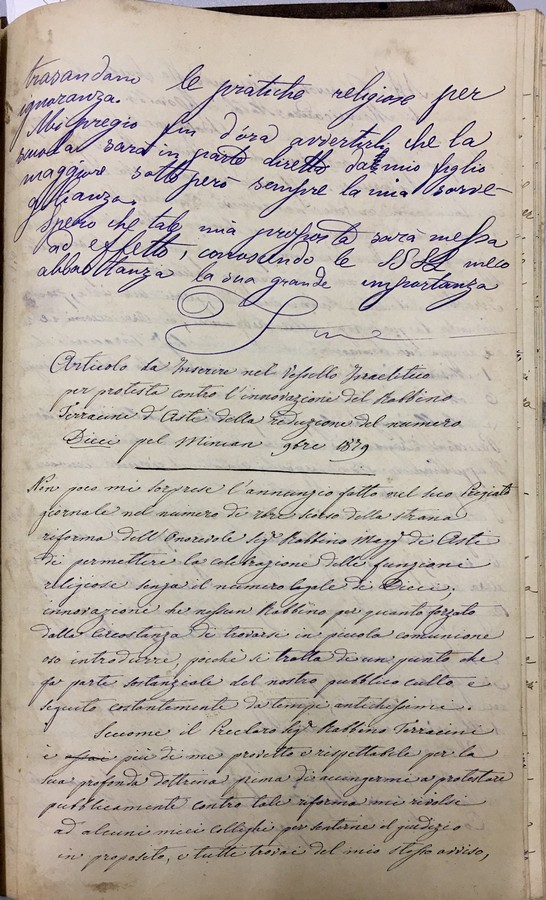 trasandano le pratiche religiose per
ignoranza.
Mi pregio fin d'ora avvertirli che la
scuola sarà in parte diretta dal mio figlio
maggiore sotto però sempre la mia sorve-
glianza.
Spero che tale mia proposta sarà messa
ad effetto, conoscendo le SS LL meco
abbastanza la sua grande importanza
Articolo da Inserire nel Vessillo Israelitico
per protesta contro l'innovazione del Rabbino
Terracini d'Asti della reduzione del numero
Dieci pel Minian 9bre 1879
Non poco mi sorprese l'annunzio fatto nel suo Pregiato
giornale nel numero di 8bre scorso della strana
riforma dell'Onorevole Sigr Rabbino Magg. di Asti
di permettere la celebrazione delle funzioni
religiose senza il numero legale di Dieci;
innovazione che nessun Rabbino per quanto forzato
dalle Circostanze di trovarsi in picola comunione
osò introdurre, poichè si tratta di un punto che
fa parte sostanziale del nostro pubblico culto e
seguito costantemente da tempi antichissimi.
Siccome il Preclaro Sigr Rabbino Terracini
è assai più di me provetto e rispettabile per la
sua profonda dottrina prima di accingermi a protestare
pubblicamente contro tale riforma mi rivolsi
ad alcuni miei colleghi per sentirne il giudizio
in proposito, e tutti trovai del mio stesso avviso,